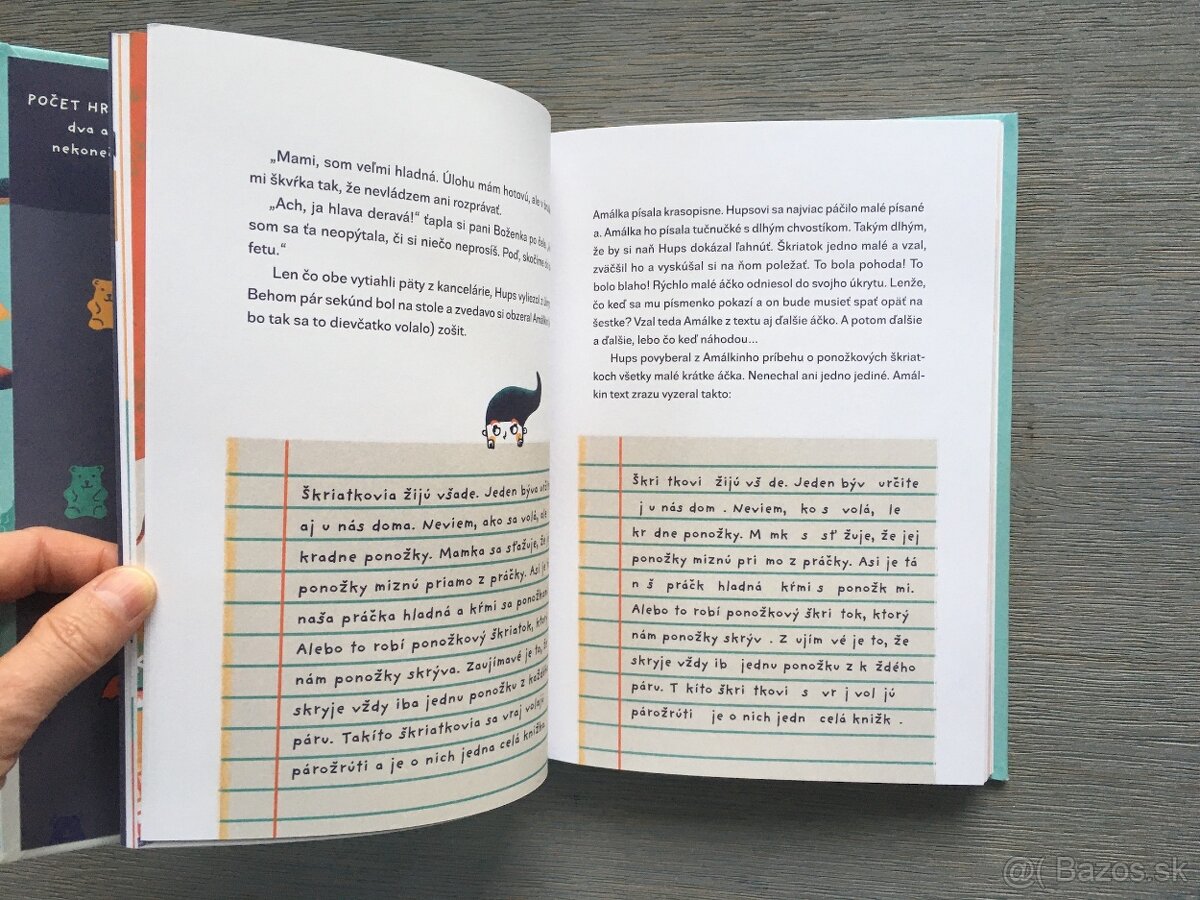 POČET HR
dva a
nekone
„Mami, som veľmi hladná. Úlohu mám hotovú, ale v
mi škvŕka tak, že nevládzem ani rozprávať.
„Ach, ja hlava deravá!“ ťapla si pani Boženka po
som sa ťa neopýtala, či si niečo neprosíš. Poď, skočíme
fetu.“
Len čo obe vytiahli päty z kancelárie, Hups vyliezol z
Behom pár sekúnd bol na stole a zvedavo si obzeral
bo tak sa to dievčatko volalo) zošit.
Škriatkovia žijú všade. Jeden býva
aj u nás doma. Neviem, ako sa volá, ale
kradne ponožky. Mamka sa sťažuje, že
ponožky miznú priamo z práčky. Asi je
naša práčka hladná a kŕmi sa ponožkam
Alebo to robí ponožkový škriatok, ktor
nám ponožky skrýva. Zaujímavé je to, že
skryje vždy iba jednu ponožku z každého
páru. Takíto škriatkovia sa vraj volajú
párožrúti a je o nich jedna celá knižka.
Amálka písala krasopisne. Hupsovi sa najviac páčilo malé písané
a. Amálka ho písala tučnučké s dlhým chvostíkom. Takým dlhým,
že by si naň Hups dokázal ľahnúť. Škriatok jedno malé a vzal,
zväčšil ho a vyskúšal si na ňom poležať. To bola pohoda! To
bolo blaho! Rýchlo malé áčko odniesol do svojho úkrytu. Lenže,
čo keď sa mu písmenko pokazí a on bude musieť spať opäť na
šestke? Vzal teda Amálke z textu aj ďalšie áčko. A potom ďalšie
a ďalšie, lebo čo keď náhodou...
Hups povyberal z Amálkinho príbehu o ponožkových škriat-
koch všetky malé krátke áčka. Nenechal ani jedno jediné. Amál-
kin text zrazu vyzeral takto:
Škri tkovi žijú vš de. Jeden býv určite
j u nás dom . Neviem, ko s volá, le
kr dne ponožky. M mk s sť žuje, že jej
ponožky miznú pri mo z práčky. Asi je tá
n š práčk hladná kŕmi s ponožk mi.
Alebo to robí ponožkový škri tok, ktorý
nám ponožky skrýv . Z ujím vé je to, že
skryje vždy ib jednu ponožku z k ždého
páru. T kíto škri tkovi s vr j vol jú
párožrúti je o nich jedn celá knižk .
@( Bazos.sk